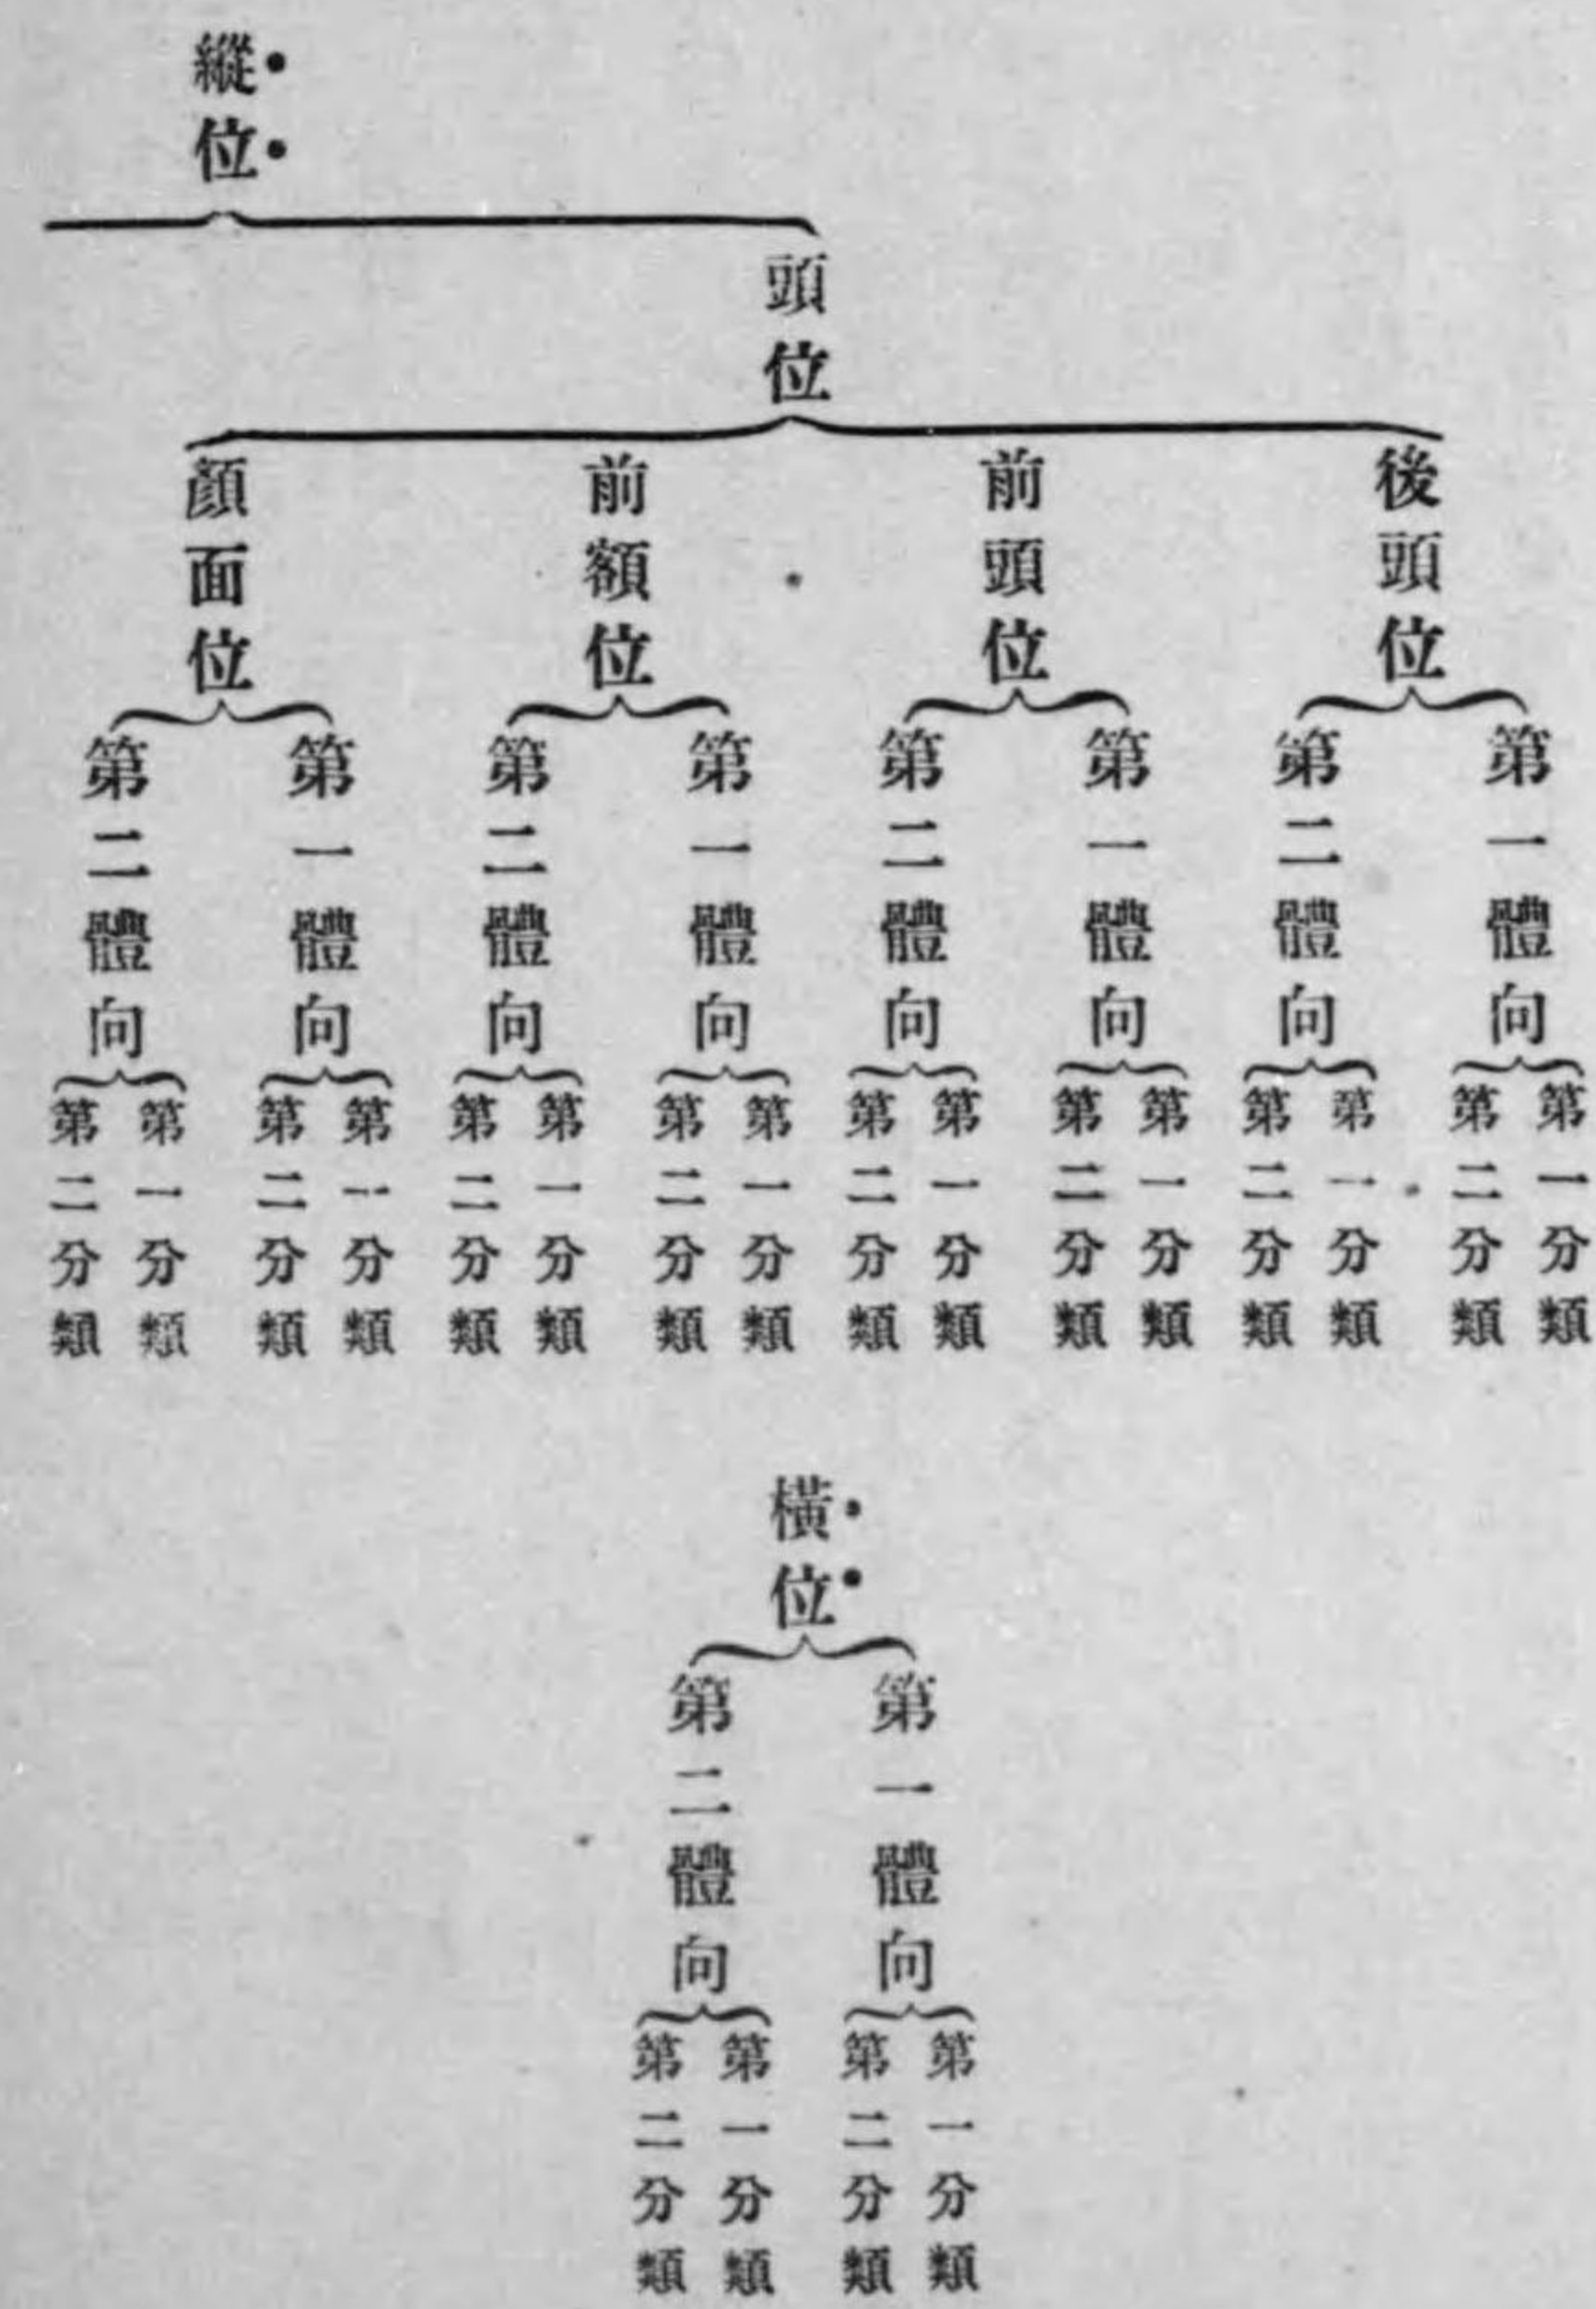 縱位
頭位
後頭位
第一體向
第一分類
第二分類
第二體向
第一分類
第二分類
前頭位
第一體向
第一分類
第二分類
第二體向
第一分類
第二分類
前額位
第一體向
第一分類
第二分類
第二體向
第一分類
第二分類
顏面位
第一體向
第一分類
第二分類
第二體向
第一分類
第二分類
橫位
第一體向
第一分類
第二分類
第二體向
第一分類
第二分類